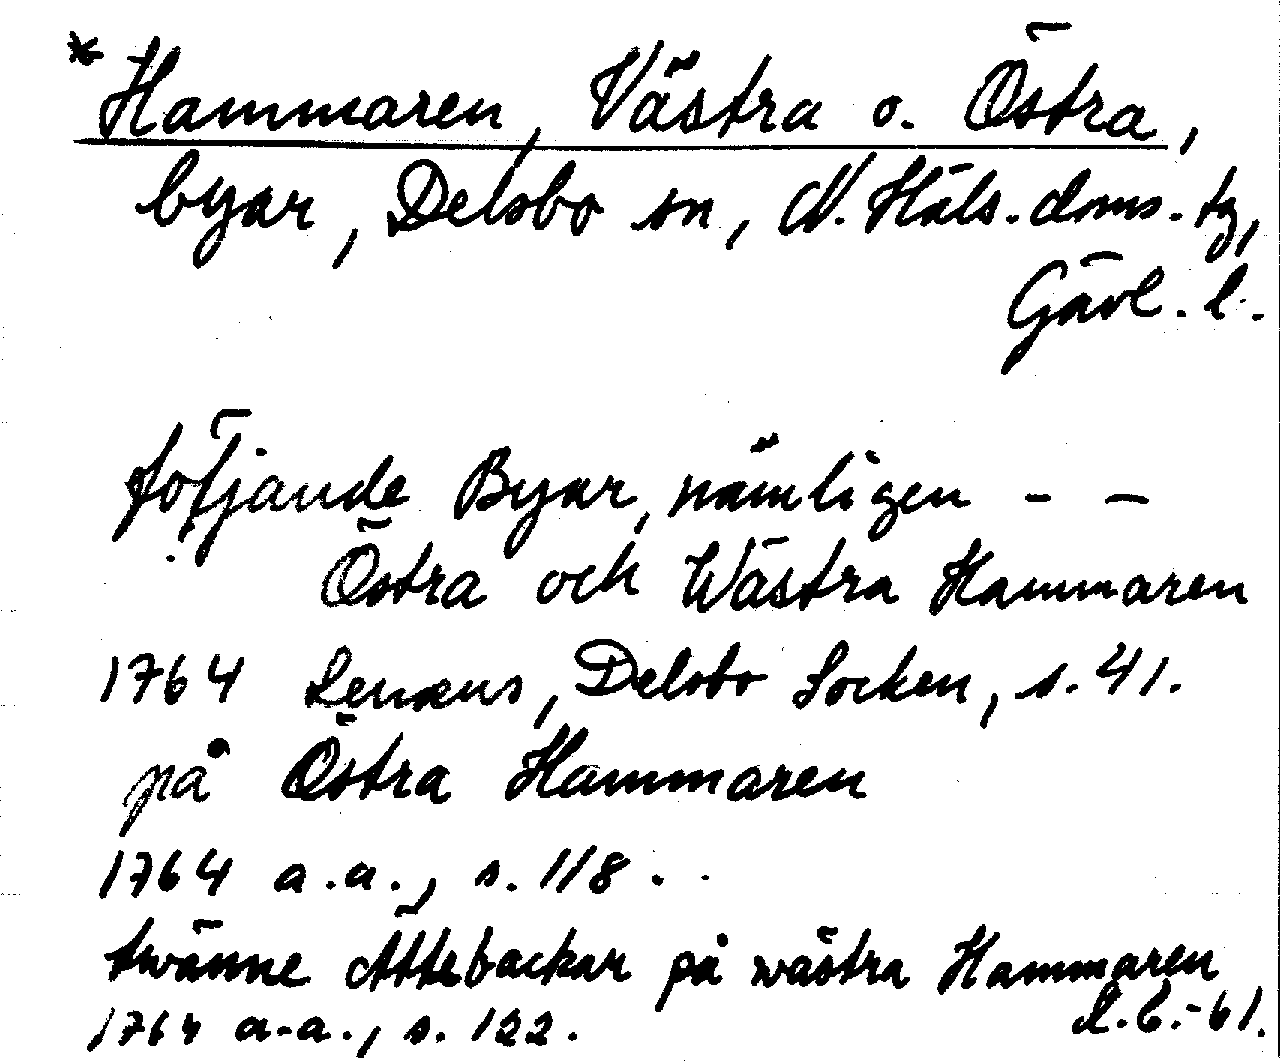 * Hammaren, Västra o. Östra,
byar, Delsbo sn, N. Häls. doms. tg,
Gävl. l.
följande Byar, nämligen - -
Östra och Wästra Hammaren
1764 Lenæus, Delsbo Socken, s. 41.
på Östra Hammaren
1764 a.a., s. 118.
twänne Ättebackar på wästra Hammaren
1764 a.a., s. 122.